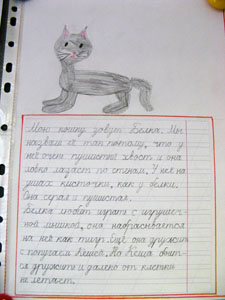 Мою кошку зовут Белка. Мы
назвали её так потому, что у
неё очень пушистый хвост и она
ловко лазает по стенам. У неё на
ушах кисточки, как у белки.
Она серая и пушистая.
Белка любит играть с игрушеч-
ной мышкой, она набрасывается
на неё как тигр. Ещё она дружит
с попугаем Кешей. Но Кеша боит-
ся дружить и далеко от клетки
не летает.